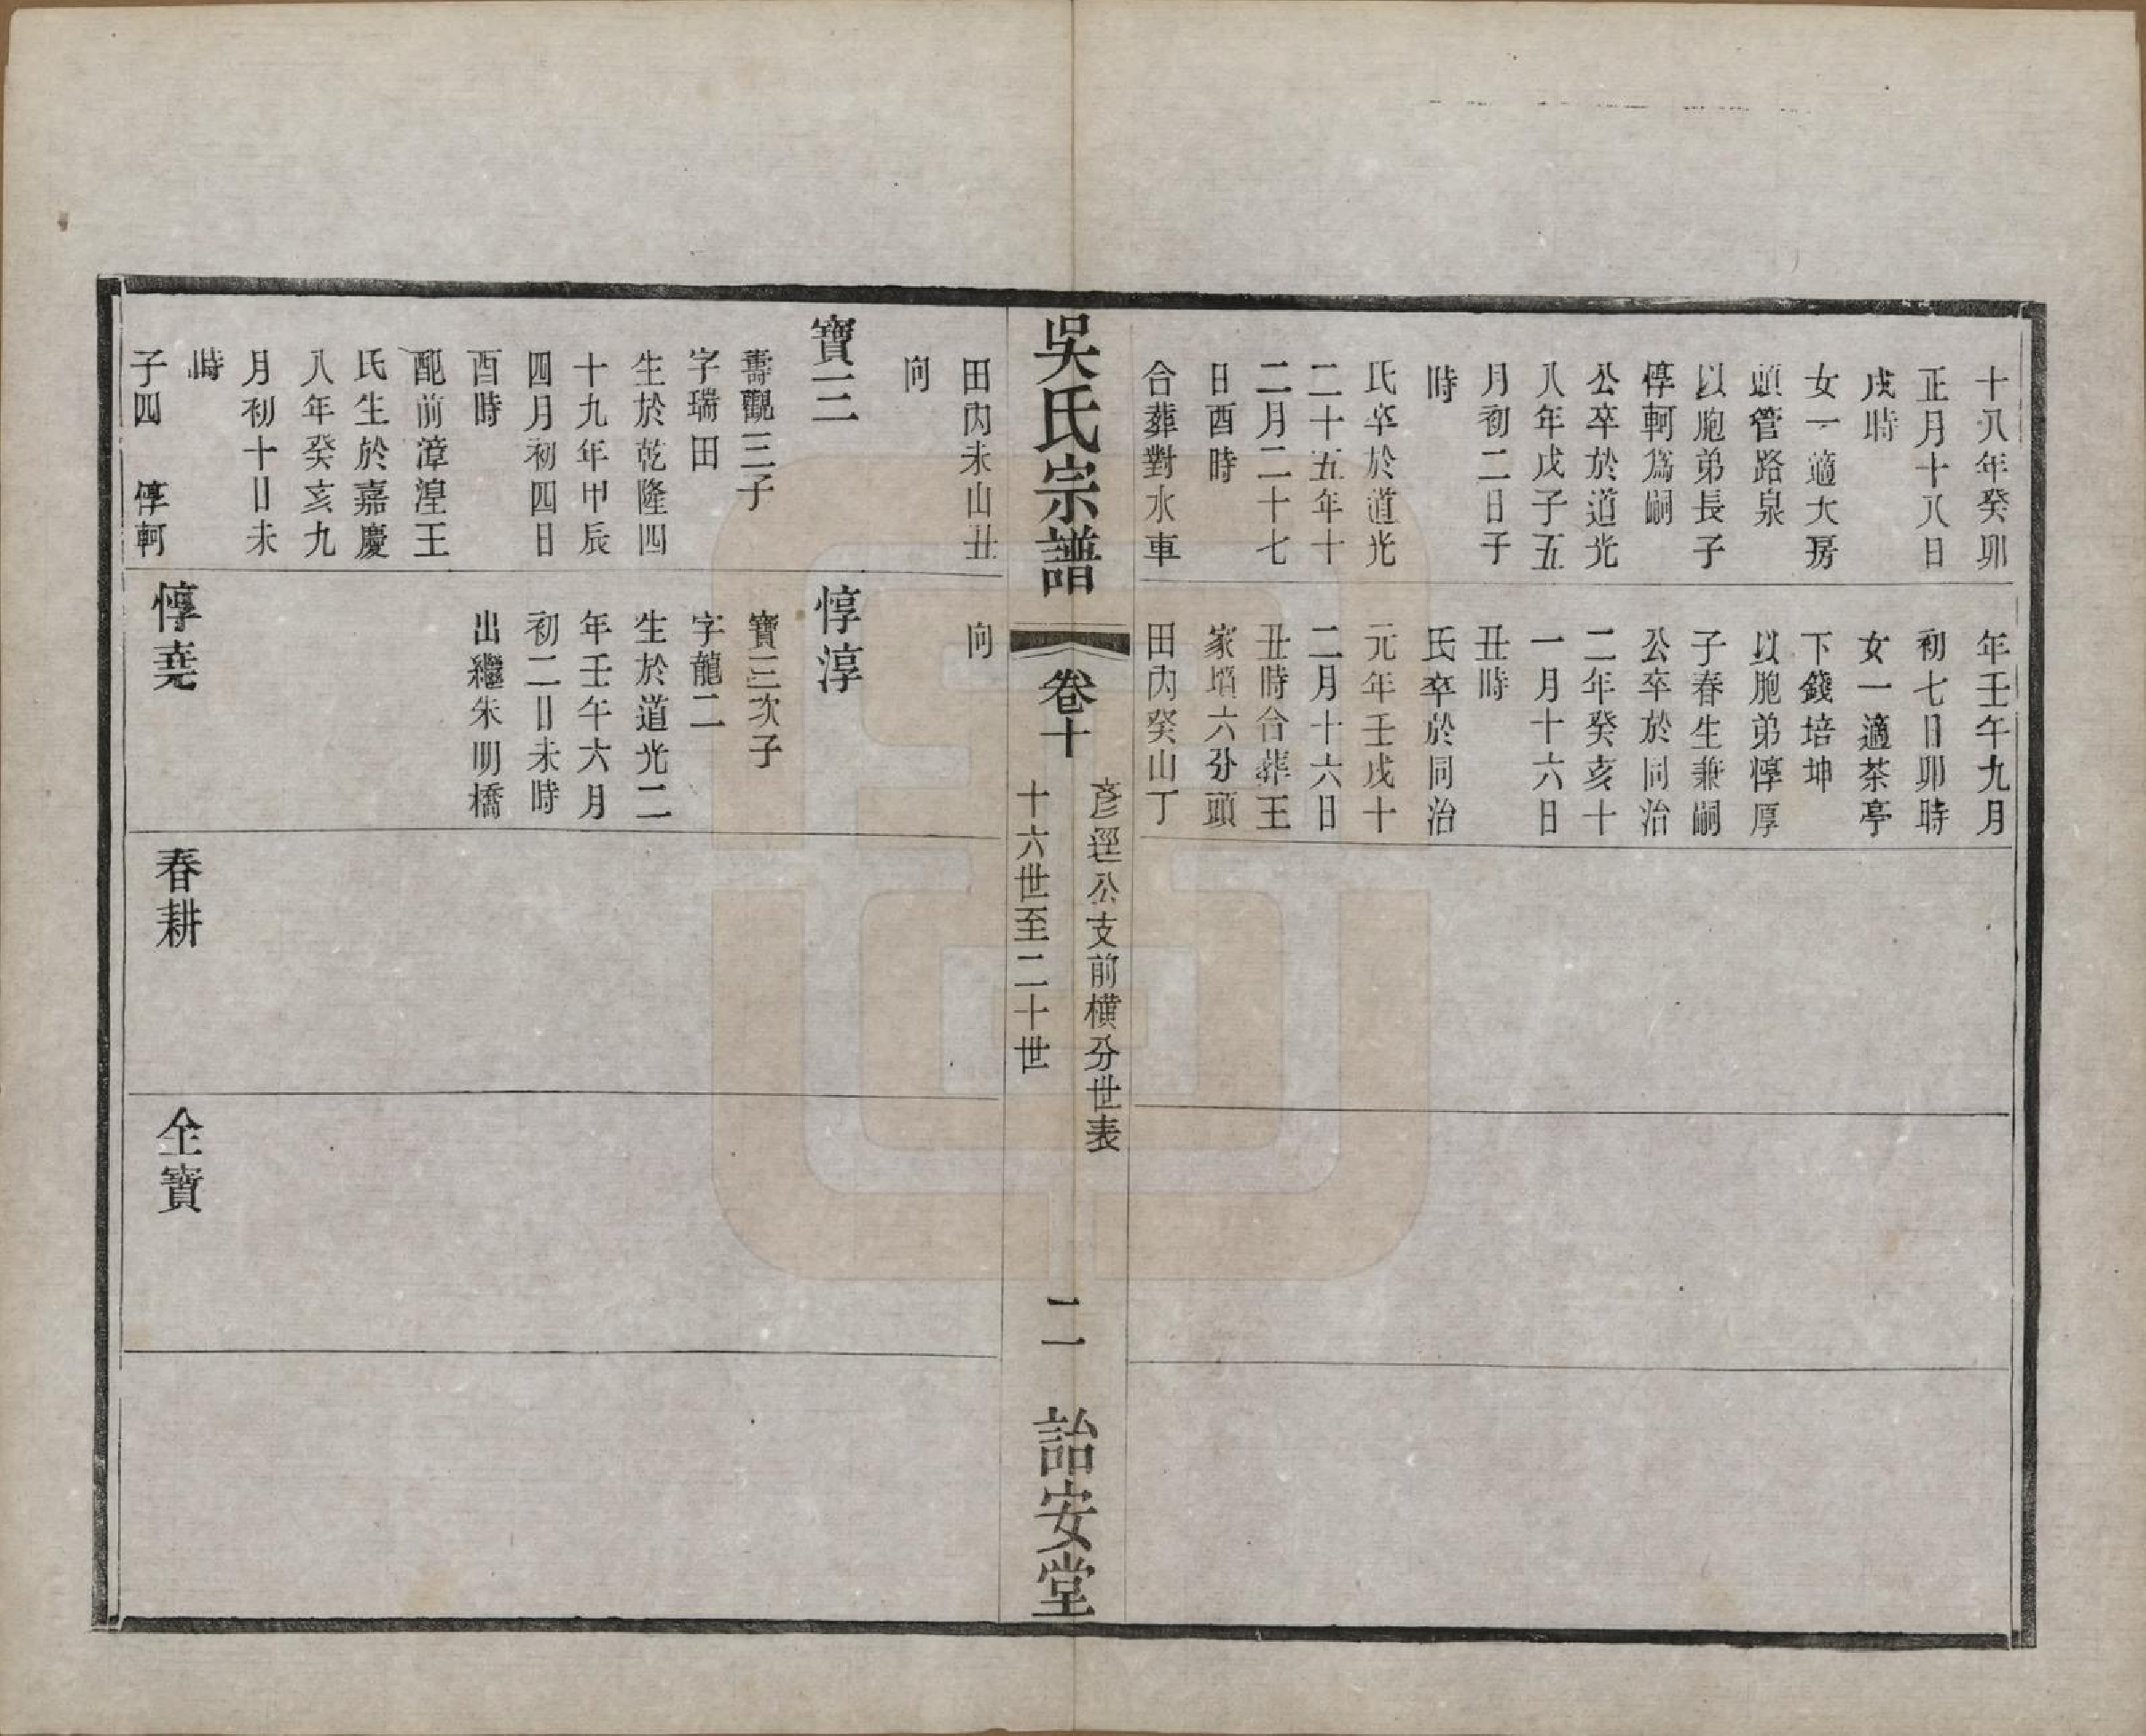 十八年癸卯
正月十八日
戌時
女一適大房
頭管路泉
以胞弟長子
惇軻爲嗣
公卒於道光
八年戊子五
月初二日子
時
氏卒於道光
二十五年十
二月二十七
日酉時
合葬對水車
年壬午九月
初七日卯時
女一適茶亭
下錢培坤
以胞弟惇厚
子春生兼嗣
公卒於同治
二年癸亥十
一月十六日
丑時
氏卒於同治
元年壬戌十
二月十六日
丑時合葬王
家墳六分頭
田內癸山丁
吳氏宗譜
卷十
彥逕公支前橫分世表
十六世至二十世
二
詒安堂
田內未山丑
向
寶三
壽觀三子
字瑞田
生於乾隆四
十九年甲辰
四月初四日
酉時
配前漳湟王
氏生於嘉慶
八年癸亥九
月初十日未
時
子四 惇軻
向
惇淳
寶三次子
字龍二
生於道光二
年壬午六月
初二日未時
出繼朱明橋
惇堯
春耕
全寶